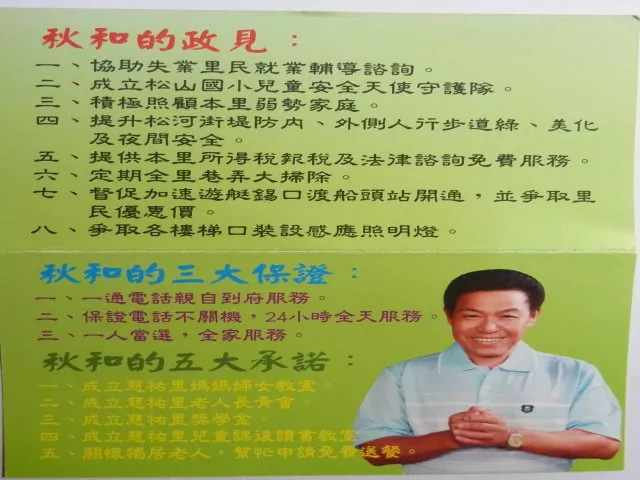 秋和的政見：
一、協助失業里民就業輔導諮詢。
二、成立松山國小兒童安全天使守護隊。
三、積極照顧本里弱勢家庭。
四、提升松河街堤防內、外側人行步道綠、美化
及夜間安全。
五、提供本里所得稅報稅及法律諮詢免費服務。
六、定期全里巷弄大掃除。
七、督促加速遊艇錫口渡船頭站開通，並爭取里
民優惠價。
八、爭取各樓梯口裝設感應照明燈。
秋和的三大保證：
一、一通電話親自到府服務。
二、保證電話不關機，24小時全天服務。
三、一人當選，全家服務。
秋和的五大承諾：
一、成立慈祐里媽媽婦女教室。
二、成立慈祐里老人長青會。
三、成立慈祐里獎學金。
四、成立慈祐里兒童課後讀書教室
五、關懷獨居老人，幫忙申請免費送餐。